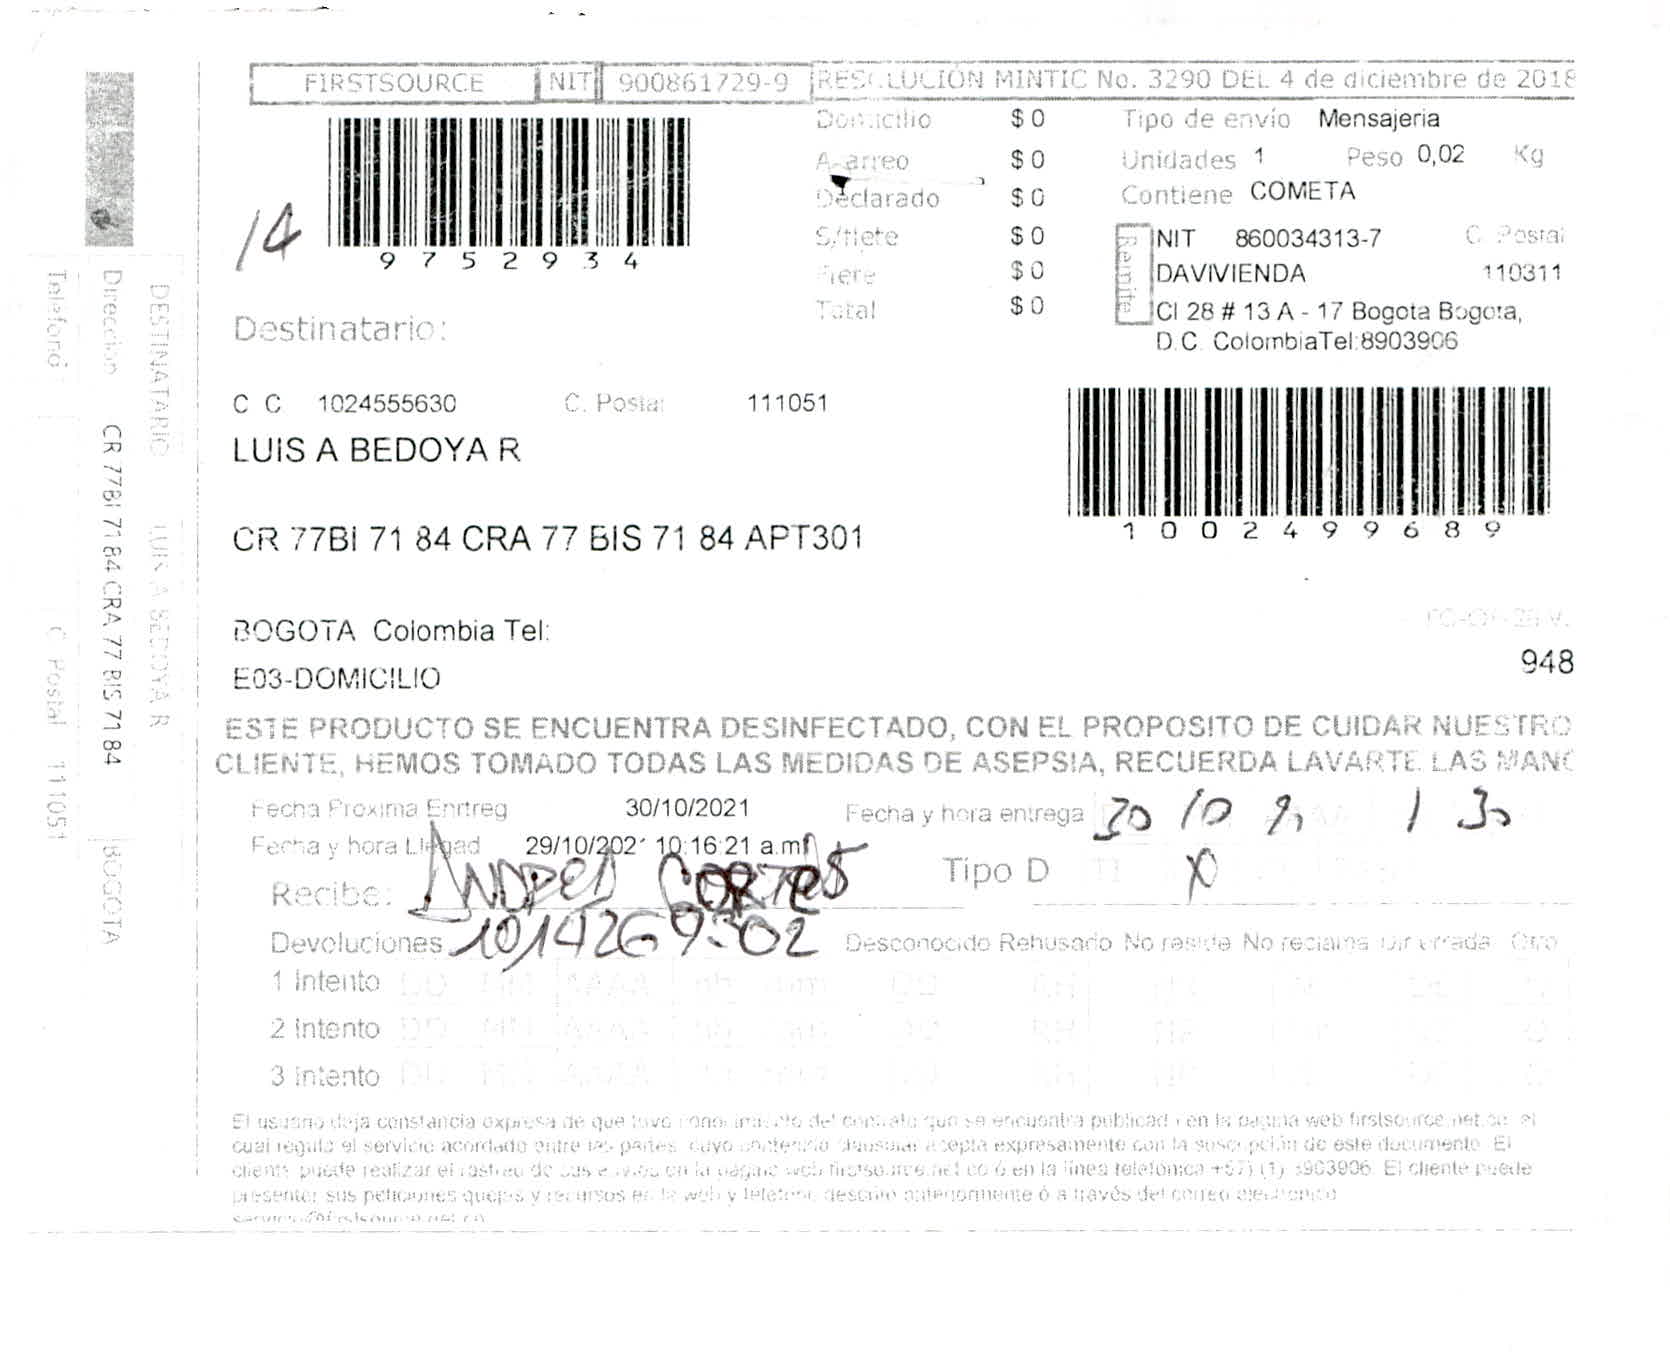 FIRSTSOURCE NIT 900861729-9 RESOLUCIÓN MINTIC No. 3290 DEL 4 de diciembre de 2018
9752934
14
Domicilio $ 0
Acarreo $ 0
Declarado $ 0
S/flete $ 0
$ 0
Total $ 0
Tipo de envío Mensajeria
Unidades 1 Peso 0,02 Kg
Contiene COMETA
Remite
NIT 860034313-7 C. Postal
DAVIVIENDA 110311
Cl 28 # 13 A - 17 Bogota Bogota,
D.C. ColombiaTel:8903906
Destinatario:
C C 1024555630 C. Postal 111051
LUIS A BEDOYA R
CR 77BI 71 84 CRA 77 BIS 71 84 APT301
1002499689
BOGOTA Colombia Tel:
E03-DOMICILIO
948
ESTE PRODUCTO SE ENCUENTRA DESINFECTADO, CON EL PROPOSITO DE CUIDAR NUESTRO
CLIENTE, HEMOS TOMADO TODAS LAS MEDIDAS DE ASEPSIA, RECUERDA LAVARTE LAS MANO
Fecha Proxima Enrtreg 30/10/2021
Fecha y hora entrega 30 10 1 30
Fecha y hora Llegad 29/10/2021 10:16:21 a.m.
Tipo D X
Recibe: ANDREA CORTES
1014269302
Devoluciones Desconocido Rehusado No reside No reclama Dir errada Otro
1 Intento DD MM AAAA hh mm
2 Intento DD MM AAAA hh
3 Intento DD MM AAAA
El usuario deja constancia expresa de que tuvo conocimiento del contrato que se encuentra publicado en la pagina web firstsource.net.co. el
cual regula el servicio acordado entre las partes, cuyo contenido clausular acepta expresamente con la suscripción de este documento. El
cliente puede realizar el rastreo de sus envios en la página web firstsource.net.co ó en la línea telefónica +57) (1) 8903906. El cliente puede
presentar sus peticiones quejas y recursos en la web y teléfono descrito anteriormente ó a través del correo electronico
DESTINATARIO LUIS A BEDOYA R
Direccion CR 77BI 71 84 CRA 77 BIS 71 84 BOGOTA
Telefono C. Postal 111051